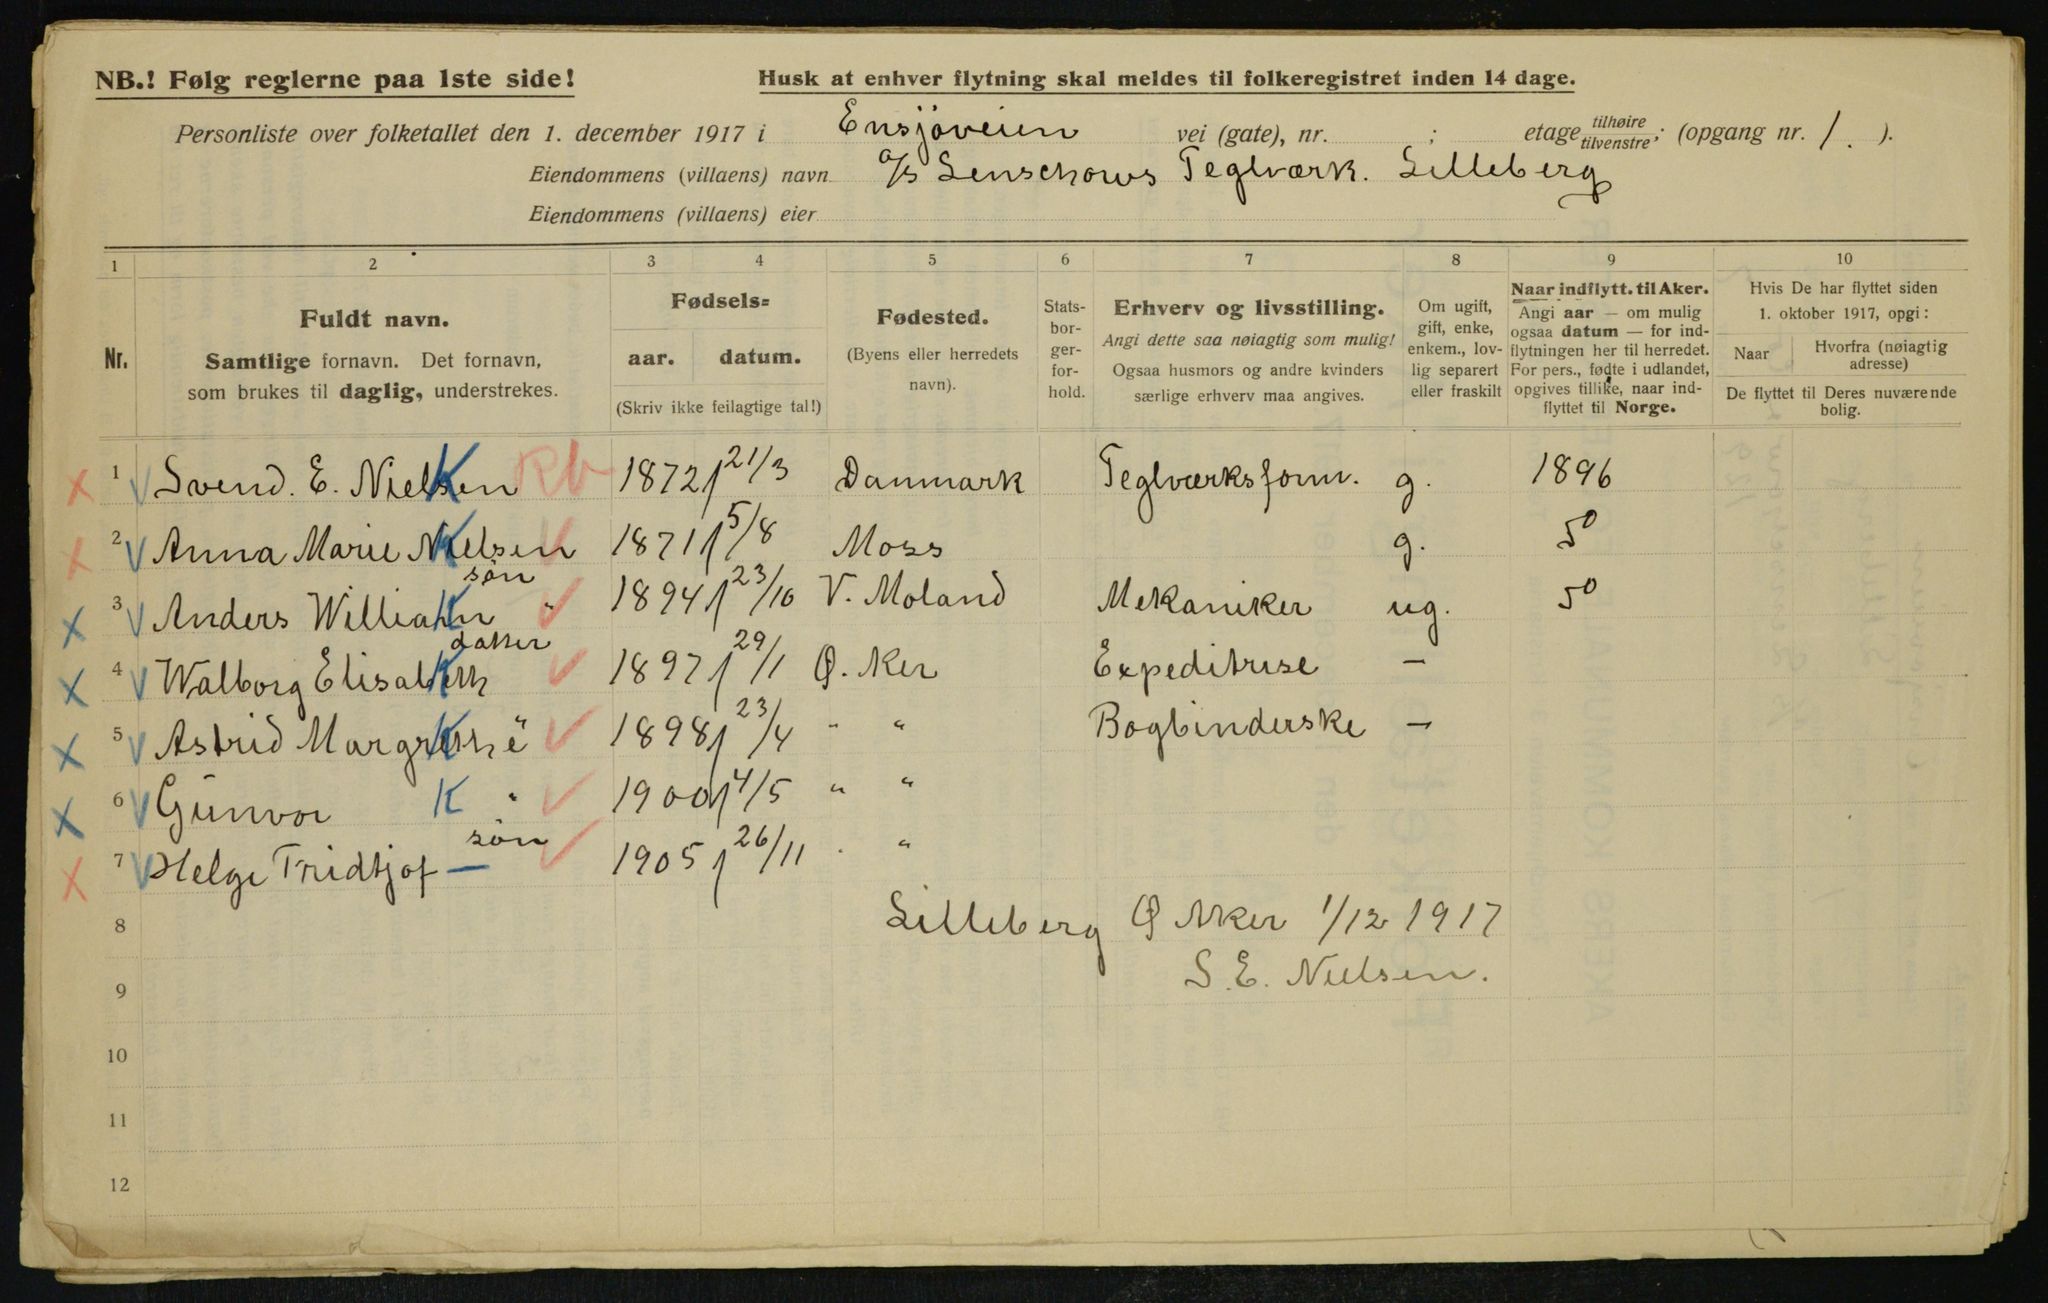 NB.! Følg reglerne paa 1ste side! Husk at enhver flytning skal meldes til folkeregistret inden 14 dage.
Personliste over folketallet den 1. december 1917 i Ensjøveien vei (gate), nr. ; etage tilhøire tilvenstre; (opgang nr. 1. ).
Eiendommens (villaens) navn A/S Lenschows Teglværk. Lilleberg
Eiendommens (villaens) eier
1 2 3 4 5 6 7 8 9 10
Nr.
Fuldt navn.
Samtlige fornavn. Det fornavn,
som brukes til daglig, understrekes.
Fødsels=
aar. datum.
(Skriv ikke feilagtige tal!)
Fødested.
(Byens eller herredets
navn).
Stats-
bor-
ger-
for-
hold.
Erhverv og livsstilling.
Angi dette saa nøiagtig som mulig!
Ogsaa husmors og andre kvinders
særlige erhverv maa angives.
Om ugift,
gift, enke,
enkem., lov-
lig separert
eller fraskilt
Naar indflytt. til Aker.
Angi aar — om mulig
ogsaa datum — for ind-
flytningen her til herredet.
For pers., fødte i udlandet,
opgives tillike, naar ind-
flyttet til Norge.
Hvis De har flyttet siden
1. oktober 1917, opgi:
Naar
Hvorfra (nøiagtig
adresse)
De flyttet til Deres nuværende
bolig.
X 1 V Svend. E. Nielsen K Rb 1872 21/3 Danmark Teglværksform. g. 1896
X 2 V Anna Marie Nielsen K V 1871 5/8 Moss g.
søn
X 3 V Anders William K " V 1894 23/10 V. Moland Mekaniker ug.
datter
X 4 V Walborg Elisabeth K V 1897 29/1 Ø. Aker Expeditrise —
X 5 V Astrid Margrethe K " V 1898 23/4 " " Bogbinderske —
X 6 V Gunvor K " V 1900 4/5 " "
søn
X 7 V Helge Fridtjof — V 1905 26/11 " "
8 Lilleberg Ø Aker 1/12 1917
9 S. E. Nielsen.
10
11
12